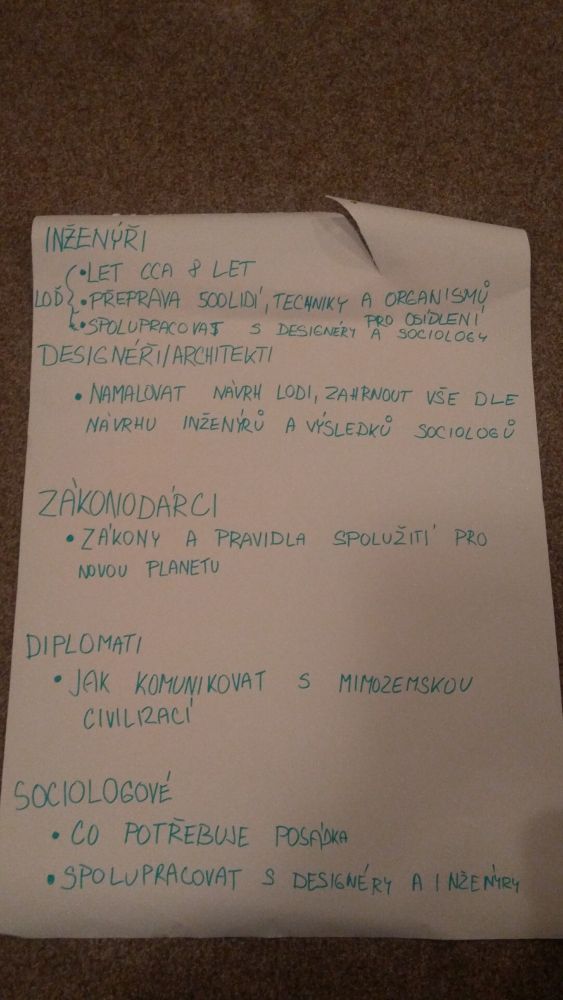 INŽENÝŘI
• LET CCA 8 LET
LOĎ • PŘEPRAVA 500 LIDÍ, TECHNIKY A ORGANISMŮ
PRO OSÍDLENÍ
• SPOLUPRACOVAT S DESIGNÉRY A SOCIOLOGY
DESIGNÉŘI/ARCHITEKTI
• NAMALOVAT NÁVRH LODI, ZAHRNOUT VŠE DLE
NÁVRHU INŽENÝRŮ A VÝSLEDKŮ SOCIOLOGŮ
ZÁKONODÁRCI
• ZÁKONY A PRAVIDLA SPOLUŽITÍ PRO
NOVOU PLANETU
DIPLOMATI
• JAK KOMUNIKOVAT S MIMOZEMSKOU
CIVILIZACÍ
SOCIOLOGOVÉ
• CO POTŘEBUJE POSÁDKA
• SPOLUPRACOVAT S DESIGNÉRY A INŽENÝRY